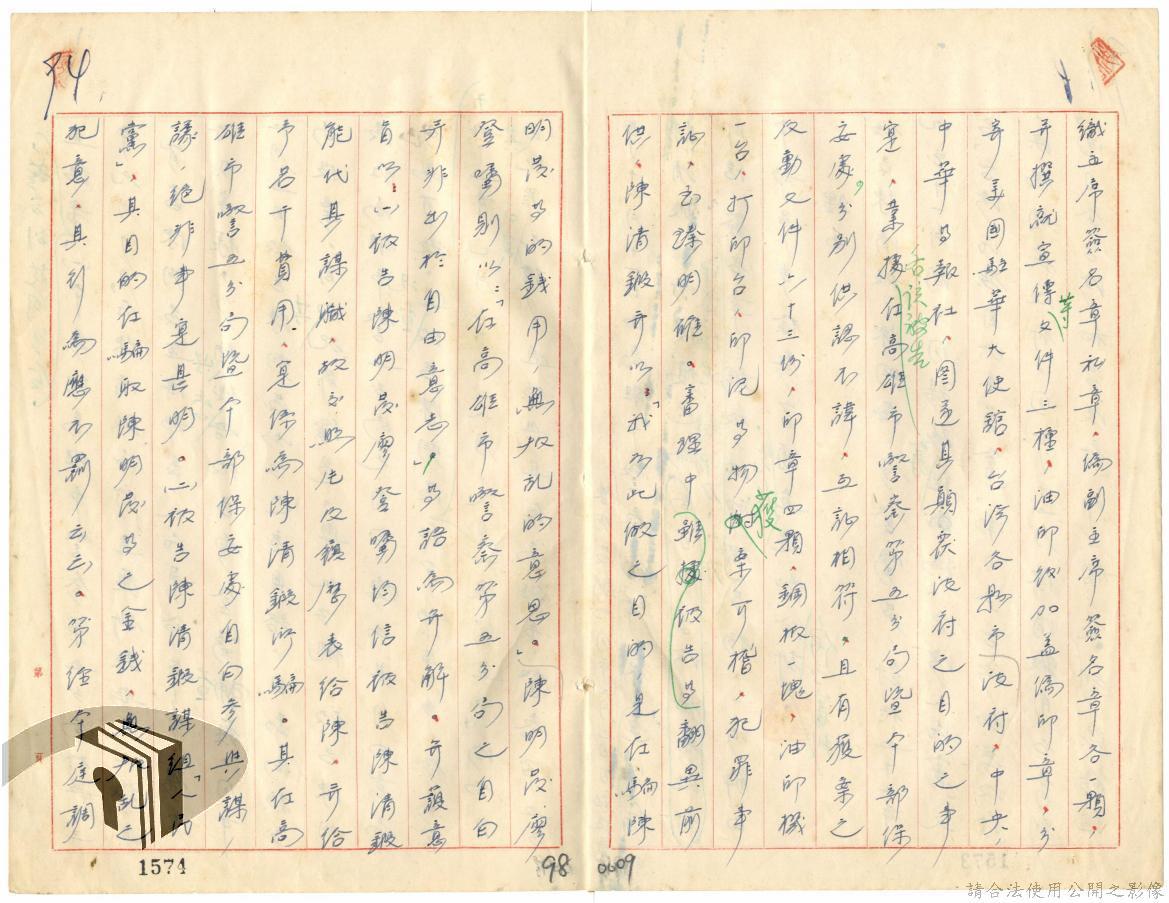 織主席簽名章私章、偽副主席簽名章各一顆、
并撰就宣傳文件三種、油印後加蓋偽印章、分
等
寄美國駐華大使館、台灣各縣市政府、中央、
中華等報社、圖遂其顛覆政府之目的之事
實、業據在高雄市警察第五分局暨本部保
各該被告
安處、分別供認不諱、互証相符、且有獲案之
反動文件六十三份、印章四顆、鋼板一塊、油印機
一台、打印台、印泥等物附案可稽、犯罪事
獲
証、至臻明確。審理中雖據被告等翻異前
供、陳清鍛弁以：「我不此做之目的是在騙陳
明茂等的錢用、無叛乱的意思。」陳明茂、廖
登囑則以：「在高雄市警察第五分局之自白
并非出於自由意志」等語為弁解。弁護意
旨以：(一)被告陳明茂廖登囑均信被告陳清鍛
能代其謀職、故交照片及履歷表給陳、并給
予若干費用、實係為陳清鍛所騙。其在高
雄市警五分局暨本部保安處自白參與謀
議、絕非事實甚明。(二)被告陳清鍛謀組「人民
黨」、其目的在騙取陳明茂等之金錢、無叛乱之
犯意、其行為應不罰云云。第經本庭調
94
第
頁
1574
98
0609
1573
請合法使用公開之影像